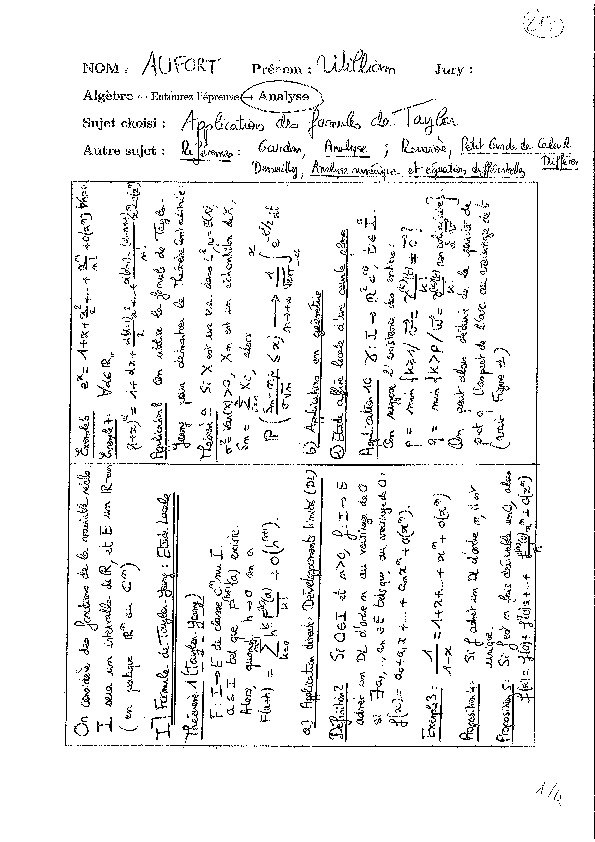 218
NOM : AUFORT Prénom : William Jury :
Algèbre ← Entourez l'épreuve → Analyse
Sujet choisi : Applications des formules de Taylor
Autre sujet : Références : Gourdon, Analyse ; Rouvière, Petit Guide de Calcul Différentiel
Demailly, Analyse numérique et équations différentielles
On considère des fonctions de la variable réelle
I sera un intervalle de ℝ, et E un ℝ-ev
(en pratique ℝⁿ ou ℂⁿ)
I) Formule de Taylor-Young : Etude Locale
Théorème 1 (Taylor Young)
F : I → E de classe Cⁿ sur I
a ∈ I tel que F⁽ⁿ⁺¹⁾(a) existe.
Alors, quand h → 0 on a
a) Application directe : Développements limités (DL)
Définition 2 Si 0 ∈ I et n ≥ 0, f : I → E
admet un DL d'ordre n au voisinage de 0
si ∃ a₀, ..., aₙ ∈ E tels que, au voisinage de 0 :
f(x) = a₀ + a₁x + ... + aₙxⁿ + o(xⁿ).
Exemple 3 : 1/(1-x) = 1 + x + ... + xⁿ + o(xⁿ)
Proposition 4 : Si f admet un DL d'ordre n, il est
unique.
Proposition 5 : Si f est n fois dérivable en 0, alors
Exemple 6 eˣ = 1 + x + x²/2 + ... + xⁿ/n! + o(xⁿ)
Exemple 7 : ∀α ∈ ℝ,
Application 8 On utilise la formule de Taylor-
Young pour démontrer le théorème central limite
Théorème 9 Si X est une v.a. dans L²,
σ² = Var(X) > 0, Xₙ est un échantillon de X,
alors
b) Applications en géométrie
Etude affine locale d'une courbe plane
Application 10 γ : I → ℝ² C^∞, t ∈ I.
On suppose l'existence des entiers :
On peut alors déduire de la parité de
p et q l'aspect de l'arc au voisinage de t
(voir Figure 1)
1/4